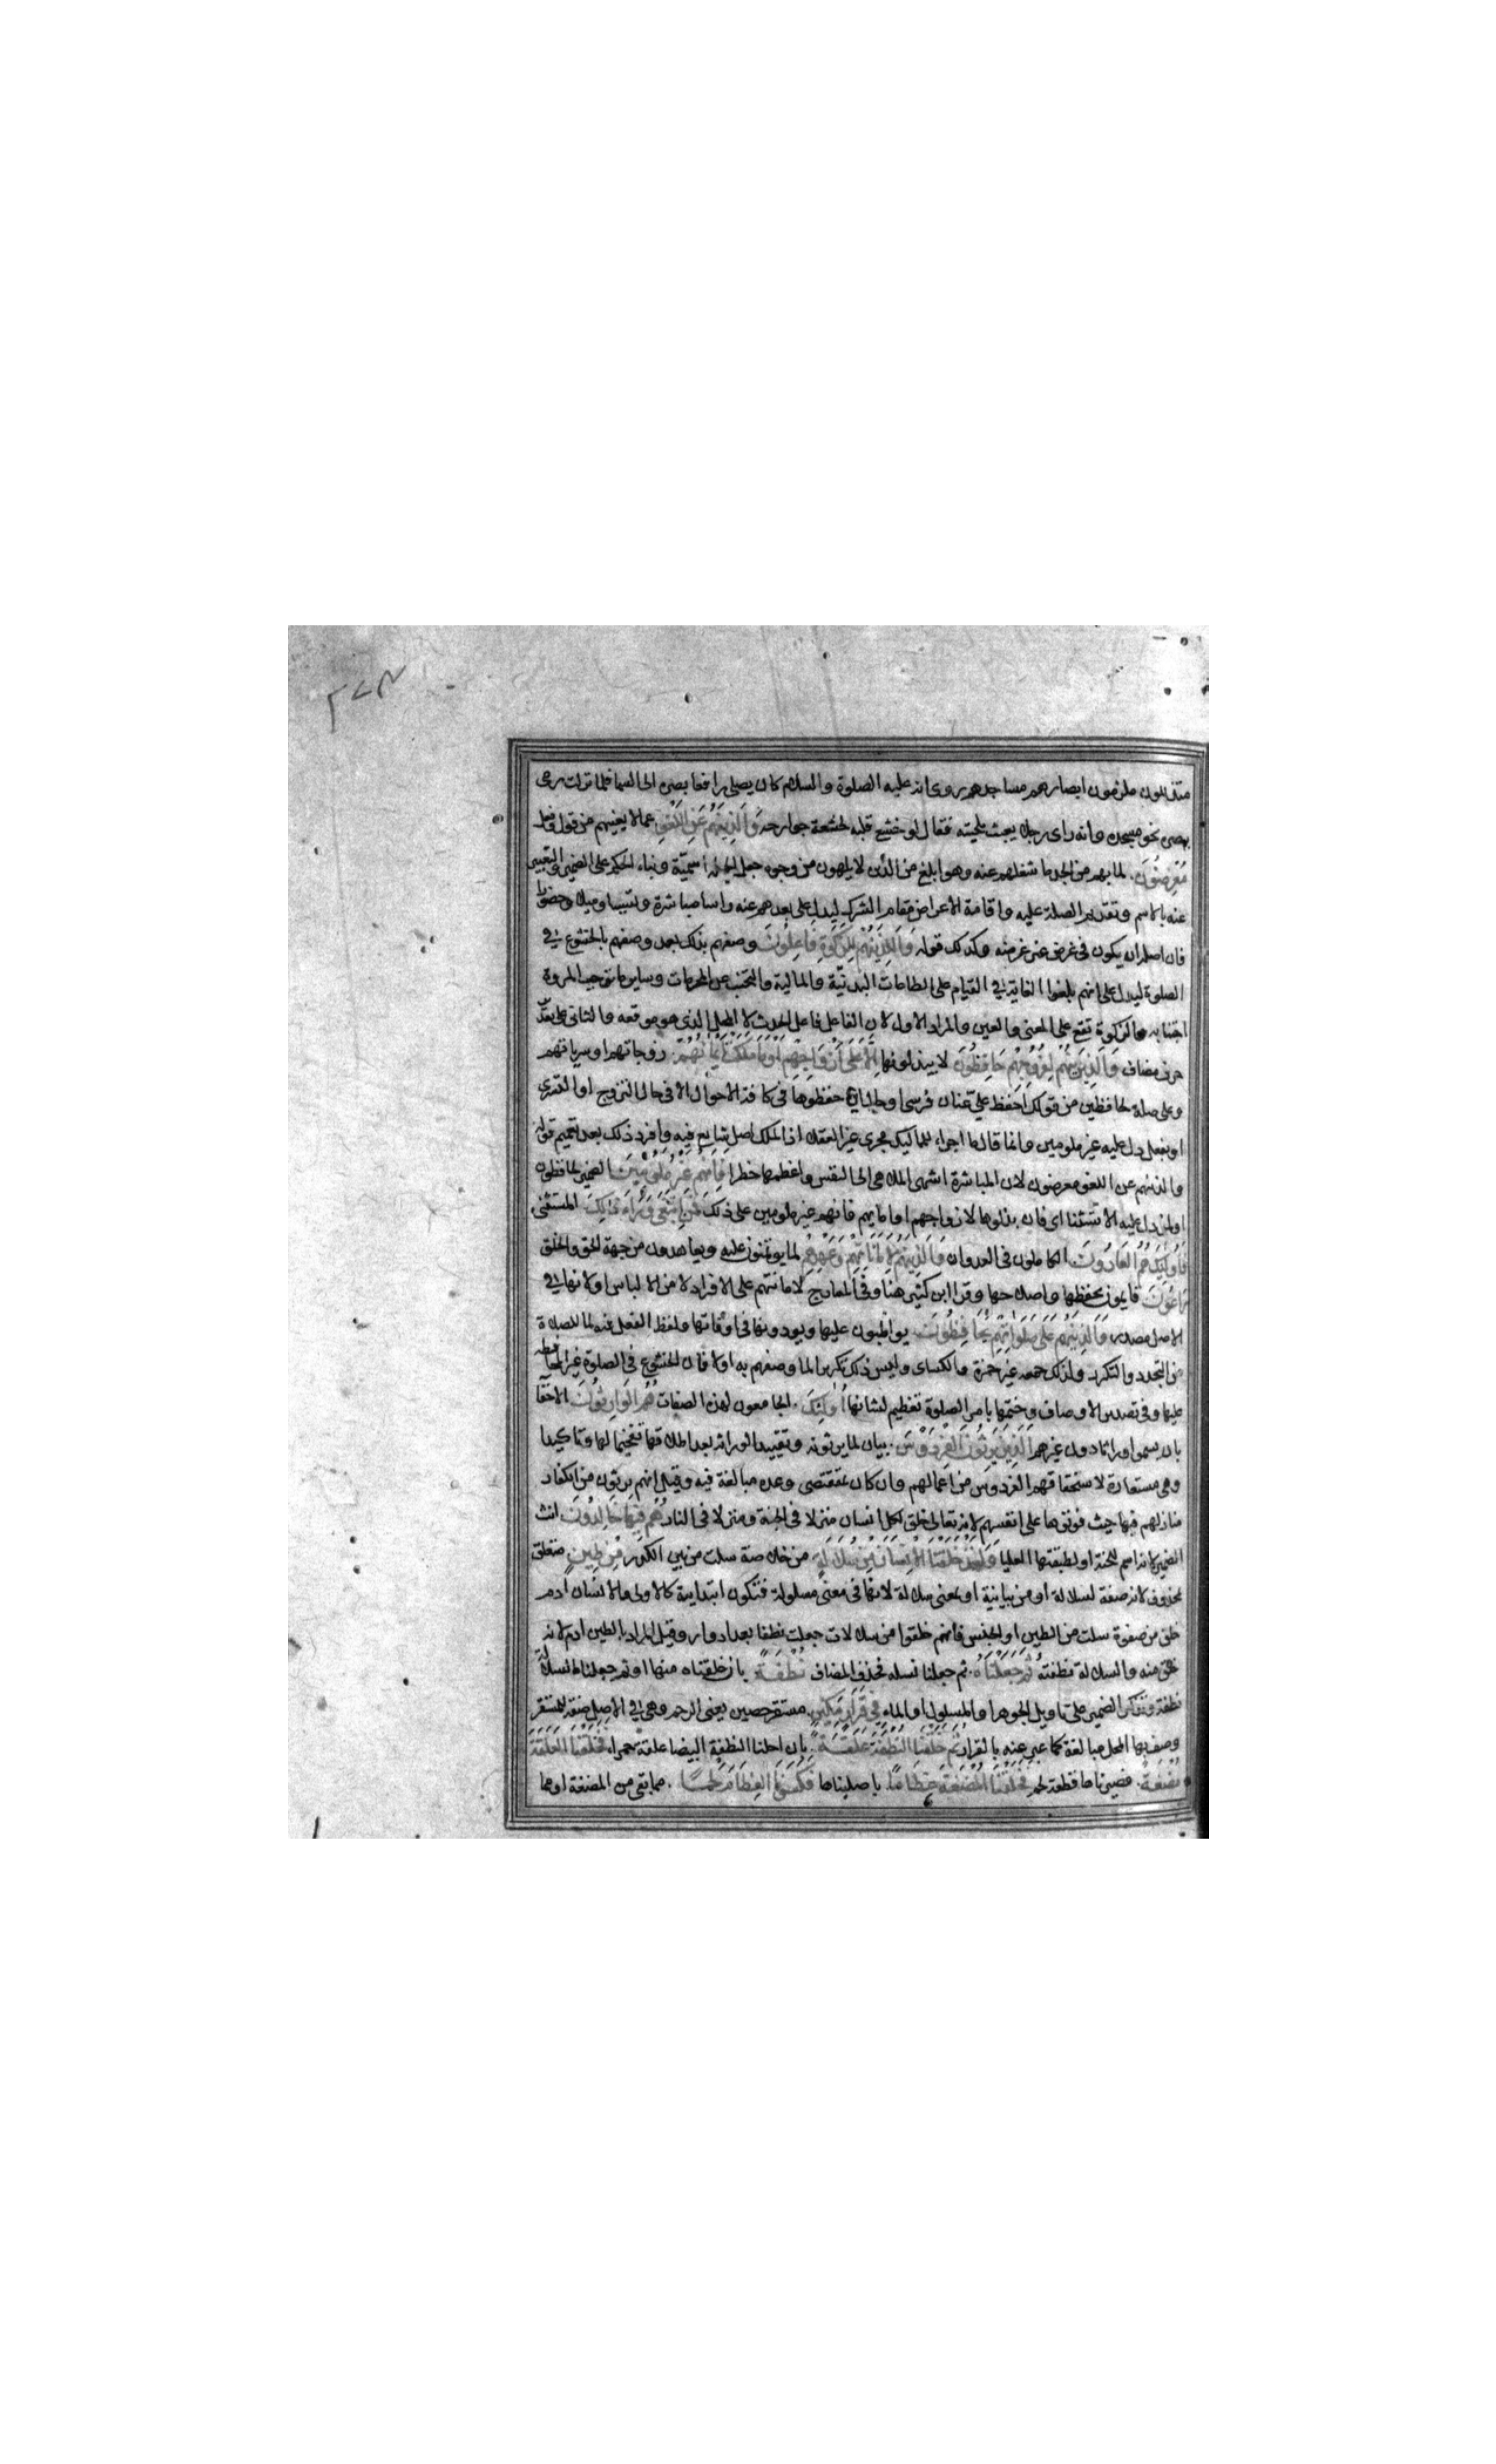 ٢٧٣
متذللون ملزمون ابصارهم مساجدهم روى انه عليه الصلوة والسلام كان يصلى رافعا بصره الى السما فلما نزلت رمى
ببصره نحو مسجده وانه راى رجلا يعبث بلحيته فقال لو خشع قلبه لخشعة جوارحه وَالَّذِينَ هُمْ عَنِ اللَّغْوِ عمالا يعنيهم من قول وفعل
مُعْرِضُونَ. لما بهم من الجد ما شغلهم عنه وهو ابلغ من الذين لا يلهون من وجوه جعل الجملة اسميّة وبناء الحكم على الضمير والتعبير
عنه بالاسم وتقديم الصلة عليه واقامة الاعراض مقام الترك ليدل على بعدهم عنه راسا مباشرة وتسببا وميلا وحضورا
فان اصله ان يكون فى عرض غير عرضه وكذلك قوله وَالَّذِينَ هُمْ لِلزَّكَوةِ فَاعِلُونَ وصفهم بذلك بعد وصفهم بالخشوع فى
الصلوة ليدل على انهم بلغوا الغاية فى القيام على الطاعات البدنيّة والمالية والتجنب عن المحرمات وساير ما توجب المروة
اجتنابه والزكوة تقع على المعنى والعين والمراد الاول لان الفاعل فاعل الحدث لا المحل الذى هو موقعه والثانى على تقدير
حرف مضاف وَالَّذِينَ هُمْ لِفُرُوجِهِمْ حَافِظُونَ لا يبذلونها إِلَّا عَلَى أَزْوَاجِهِمْ أَوْمَا مَلَكَتْ أَيْمَانُهُمْ. زوجاتهم او سرياتهم
وعلى صلة لحافظين من قولك احفظ علىّ عنان فرسى او حال اى حفظوها فى كافة الاحوال الا فى حال التزوج او التسرى
او بفعل دل عليه غير ملومين وانما قال ما اجراء للمماليك مجرى غير العقلاء اذ الملك اصل شايع فيه وافرد ذلك بعد تعميم قوله
والذين هم عن اللغو معرضون لان المباشرة اشهى الملاهى الى النفس واعظمها خطرا فَإِنَّهُمْ غَيْرُ مَلُومِينَ الضمير لحافظون
اولمن دل عليه الاستثنا اى فان بذلوها لازواجهم او امايهم فانهم غير ملومين على ذلك فَمَنِ ابْتَغَى وَرَاءَ ذَلِكَ المستثنى
فَأُولَئِكَ هُمُ الْعَادُونَ الكاملون فى العدوان وَالَّذِينَ هُمْ لِأَمَانَاتِهِمْ وَعَهْدِهِمْ لما يوتمنون عليه ويعاهدون من جهة الحق والخلق
رَاعُونَ قايمون بحفظها واصلاحها وقرا ابن كثير هنا وفى المعارج لامانتهم على الافراد لامن الالباس اولانها فى
الاصل مصدر وَالَّذِينَ هُمْ عَلَى صَلَوَاتِهِمْ يُحَافِظُونَ يواظبون عليها ويودونها فى اوقاتها ولفظ الفعل فيه لما للصلاة
من التجدد والتكرر ولذلك جمعه غير حمزة والكساى وليس ذلك تكريرا لما وصفهم به اولا فان الخشوع فى الصلوة غير المحافظة
عليها وفى تصدير الاوصاف وختمها بامر الصلوة تعظيم لشانها أُولَئِكَ. الجامعون لهذه الصفات هُمُ الْوَارِثُونَ الاحقا
بان يسموا وراثا دون غيرهم الَّذِينَ يَرِثُونَ الْفِرْدَوْسَ. بيان لما يرثونه وتقييد الوراثه بعد اطلاقها تفخيما لها وتاكيدا
وهى مستعارة لاستحقاقهم الفردوس من اعمالهم وان كان بمقتضى وعده مبالغة فيه وقيل انهم يرثون من الكفار
منازلهم فيها حيث فوتوها على انفسهم لانه تعالى خلق لكل انسان منزلا فى الجنة ومنزلا فى النار هُمْ فِيهَا خَالِدُونَ انث
الضمير لانه اسم للجنة او لطبقتها العليا وَلَقَدْ خَلَقْنَا الْإِنْسَانَ مِنْ سُلَالَةٍ من خلاصة سلت من بين الكدر مِنْ طِينٍ متعلق
بمحذوف لانه صفة لسلالة او من بيانية او بمعنى سلالة لانها فى معنى مسلولة فتكون ابتداييه كالاولى والانسان ادم
خلق من صفوة سلت من الطين او الجنس فانهم خلقوا من سلالات جعلت نطفا بعد ادوار وقيل المراد بالطين ادم لانه
خلق منه والسلالة نطفته ثُمَّ جَعَلْنَاهُ. ثم جعلنا نسله فحذف المضاف نُطْفَةً. بان خلقناه منها او ثم جعلنا السلالة
نطفة وتذكير الضمير على تاويل الجوهر او المسلول او الماء فِي قَرَارٍ مَكِينٍ. مستقر حصين يعنى الرحم وهى فى الاصل صفة للمستقر
وصف بها المحل مبالغة كما عبر عنه بالقرار ثُمَّ خَلَقْنَا النُّطْفَةَ عَلَقَةً. بان احلنا النطفة البيضا علقة حمراء فَخَلَقْنَا الْعَلَقَةَ
مُضْغَةً. فصيرناها قطعة لحم فَخَلَقْنَا الْمُضْغَةَ عِظَامًا. بان صلبناها فَكَسَوْنَا الْعِظَامَ لَحْمًا. مما بقى من المضغة او مما